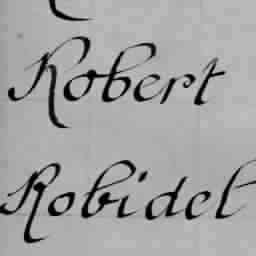 Robert
Robidel